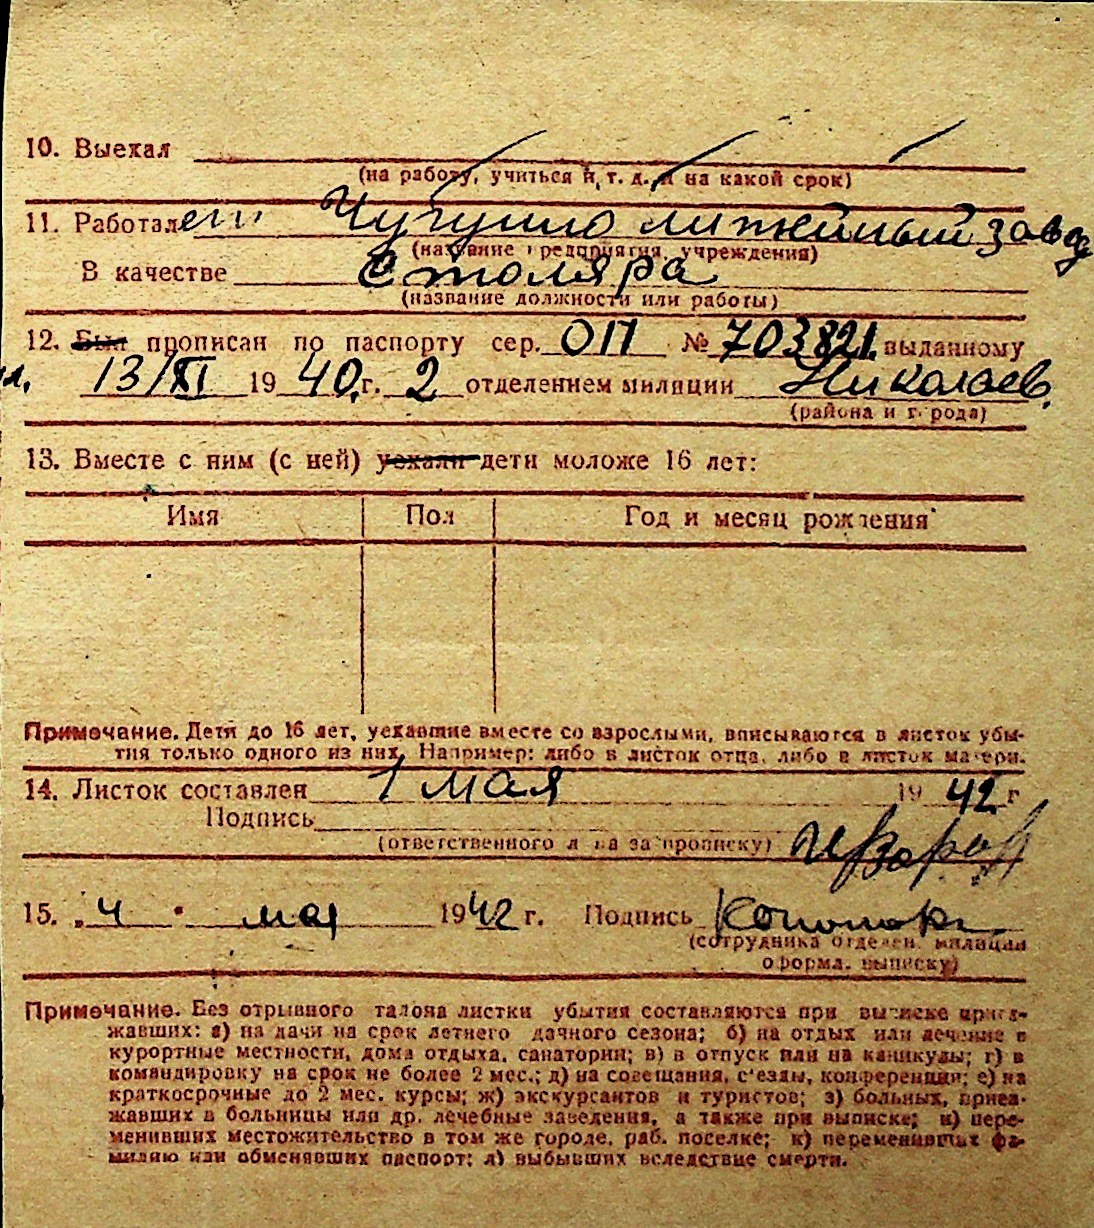 10. Выехал
(на работу, учиться и т. д. и на какой срок)
11. Работает Чугунно литейный завод
(название предприятия, учреждения)
В качестве столяра
(название должности или работы)
12. Был прописан по паспорту сер. ОП № 703821 выданному
13/XI 1940 г. 2 отделением милиции Николаев.
(района и города)
13. Вместе с ним (с ней) уехали дети моложе 16 лет:
Имя Пол Год и месяц рождения
Примечание. Дети до 16 лет, уехавшие вместе со взрослыми, вписываются в листок убы-
тия только одного из них. Например: либо в листок отца, либо в листок матери.
14. Листок составлен 1 мая 1942 г
Подпись
(ответственного лица за прописку)
15. „4" мая 1942 г. Подпись
(сотрудника отделен. милиции
оформл. выписку)
Примечание. Без отрывного талона листки убытия составляются при выписке приез-
жавших: а) на дачи на срок летнего дачного сезона; б) на отдых или лечение в
курортные местности, дома отдыха, санатории; в) в отпуск или на каникулы; г) в
командировку на срок не более 2 мес.; д) на совещания, с'езды, конференции; е) на
краткосрочные до 2 мес. курсы; ж) экскурсантов и туристов; з) больных, приез-
жавших в больницы или др. лечебные заведения, а также при выписке; и) пере-
менивших местожительство в том же городе, раб. поселке; к) переменивших фа-
милию или обменявших паспорт; л) выбывших вследствие смерти.